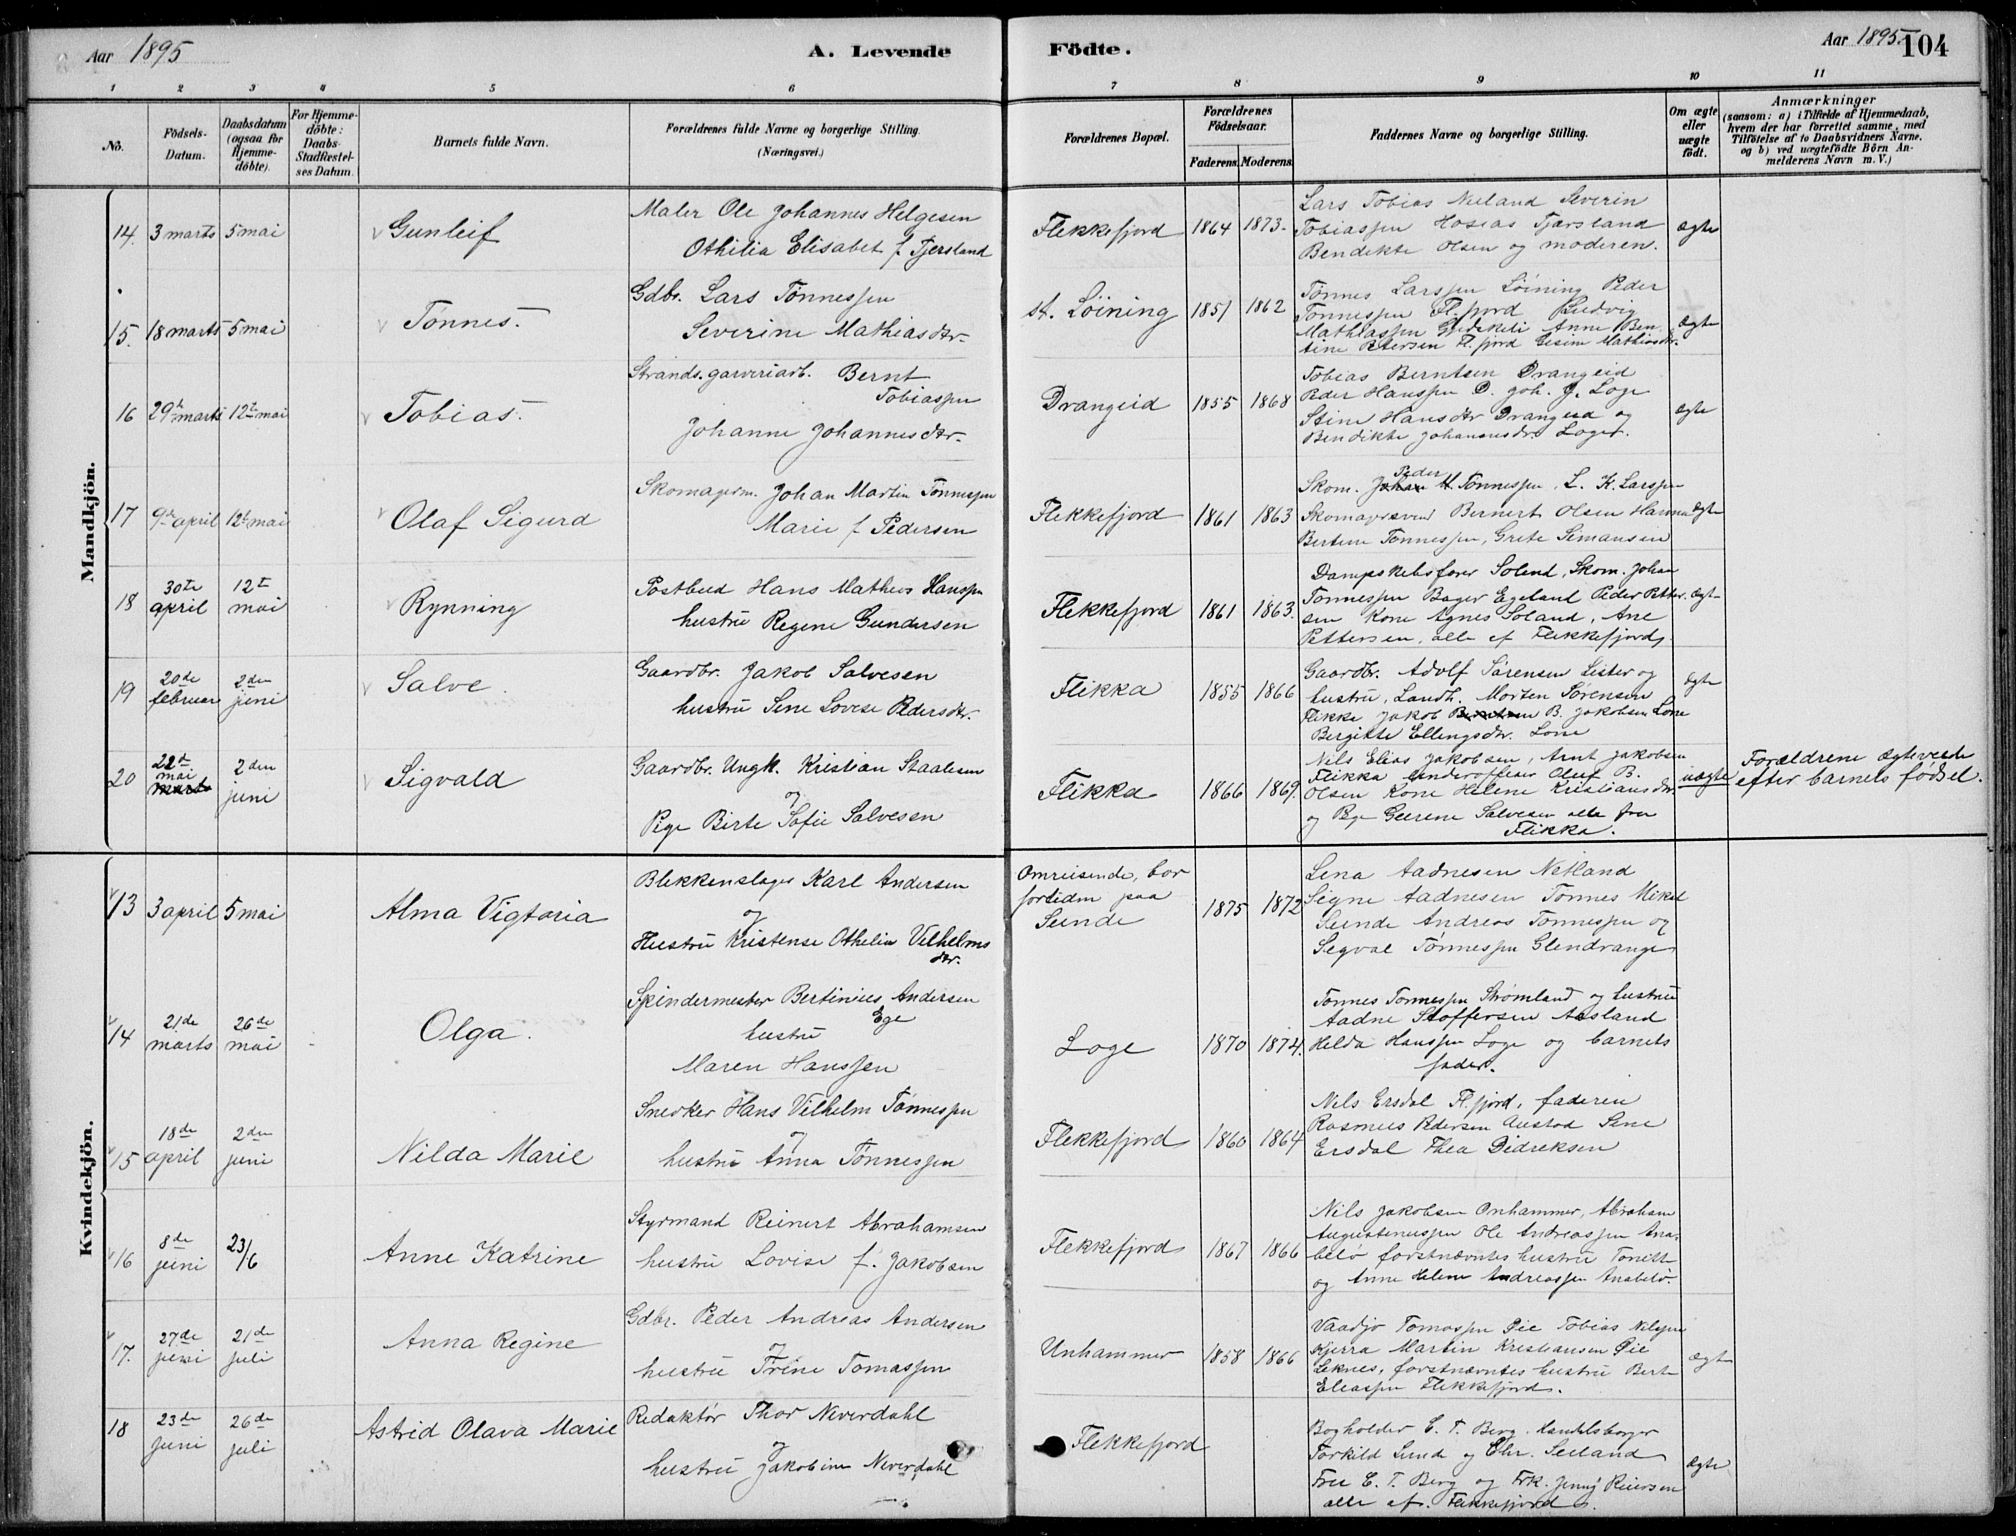 Aar 1895
A. Levende
Födte.
Aar 1895.
104
1 2 3 4 5 6 7 8 9 10 11
No.
Födsels-Datum.
Daabsdatum (ogsaa for Hjemme-döbte).
For Hjemme-döbte: Daabs-Stadfæstel-ses Datum.
Barnets fulde Navn.
Forældrenes fulde Navne og borgerlige Stilling.
(Næringsvei.)
Forældrenes Bopæl.
Forældrenes Födselsaar.
Faderens. Moderens.
Faddernes Navne og borgerlige Stilling.
Om ægte eller uægte födt.
Anmærkninger
(saasom: a) i Tilfælde af Hjemmedaab, hvem der har forrettet samme, med Tilföielse af to Daabsvidners Navne, og b) ved uægtefödte Börn An-melderens Navn m. V.)
Mandkjön.
14. 3 marts 5 mai Gunleif
Maler Ole Johannes Helgesen
Othilia Elisabet f. Tjersland
Flekkefjord 1864 1873.
Lars Tobias Nuland Severin
Tobiassen Hoseas Tjørsland
Bendikte Olsen og moderen.
ægte
15. 18 marts 5 mai Tønnes.
Gdbr. Lars Tønnessen
Severine Mathiasdtr.
st. Löining 1851 1862
Tønnes Larssen Löining Peder
Tønnessen Fl.fjord Ludvig
Mathiassen Anne Ben-
tine Petersen Fl. fjord Mathiasdtr.
Ægte
16 29de marts 12te mai Tobias.
Strands. garveriarb. Bernt
Tobiassen
Johanne Johannesdtr.
Drangeid 1855 1868
Tobias Berntsen Drangeid
Peder Hanssen D. Joh. J. Loge
Stine Hansdtr Drangeid og
Bendikte Johannesdtr Loge.
Ægte
17 9de april 12te mai Olaf Sigurd
Skomagerm. Johan Martin Tønnessen
Marie f Pedersen
Flekkefjord 1861 1863
Peder
Skom. Johan M. Tønnessen, L. K. Larssen
Skomagersvend Bernert Olsen Hanna
Bertine Tønnessen, Grete Simonsen
Ægte
18 30te april 12te mai Rynning
Postbud Hans Mathias Hanssen
hustru Regene Gundersen
Flekkefjord 1861 1863.
Dampskibsfører Solend, Skom. Johan
Tønnessen Bager Egeland Peder Petter-
sen Kone Agnes Soland, Ane
Pettersen, alle af Flekkefjord
Ægte
19 20de februar 2den juni Salve.
Gaardbr. Jakob Salvesen
hustru Sene Lovise Pedersdtr.
Flikka 1855 1866
Gaardbr. Adolf Sørensen Lister og
hustru, Landh. Morten Sørensen
Flikke Jakob B. Jakobsen Lone
Bergitte Ellingsdtr. Lone
Ægte
20 22de mai marts 2den juni Sigvald
Gaardbr. Ungk. Kristian Staalesen
og
Pige Birte Sofie Salvesen
Flikka 1866 1869.
Nils Elias Jakobsen, Arnt Jakobsen
Flikka Underofficer Oluf B.
Olsen Kone Helene Kristiansdtr.
og Pige Geerene Salvesen alle fra
Flikka.
uægte
Forældrene ægteviede
efter barnets fødsel.
Kvindekjön.
13 3 april 5 mai Alma Vigtoria
Blikkenslager Karl Andersen
og
Hustru Kristense Othelia Vilhelms
dtr.
Omreisende, bor
fortiden paa
Sunde
1875 1872
Lena Aadnesen Netland
Signe Aadnesen Tønnes Mikal
Sunde Andreas Tønnessen og
Segval Tønnessen Glendrange
14 21de marts 26de mai Olga.
Skindermester Bertinius Andersen
Ege
hustru
Maren Hanssen
Loge 1870 1874.
Tønnes Tønnessen Strømland og hustru
Aadne Stoffersen Aasland
Helda Hanssen Loge og barnets
fader.
15 18de april 2den juni Nilda Marie
Snedker Hans Vilhelm Tønnessen
og
hustru Anna Tønnessen
Flekkefjord 1860 1864
Nils Ersdal Fl.fjord, faderen
Rasmus Pedersen Austad Sine
Ersdal Thea Didriksen
16 8de juni 23/6 Anne Katrine
Styrmand Reinert Abrahamsen
hustru Lovise f. Jakobsen
Flekkefjord 1867 1866
Nils Jakobsen Onhammer, Abraham
Augustinussen Ole Andreassen Ana-
belø forstnævntes hustru
og Anne Helene Andreassen Anabelø.
17. 27de juni 21de juli Anna Regine
Gdbr. Peder Andreas Andersen
og
hustru Trine Tomassen
Unhammer 1858 1866
Tomassen Øie Tobias Nilssen
Kjerra Martin Kristiansen Øie
Leknes, forstnævntes hustru Berte
Eliassen Flekkefjord.
Ægt
18 23de juni 26de juli Astrid Olava Marie
Redaktør Thor Neverdahl
og
hustru Jakobine Neverdahl
Flekkefjord
Bogholder E. T. Berg, Handelsborger
Torkild Lund og Chr. Seiland
Fru E. T. Berg og Frk. Jenny Reiersen
alle af. Flekkefjord.
Ægte